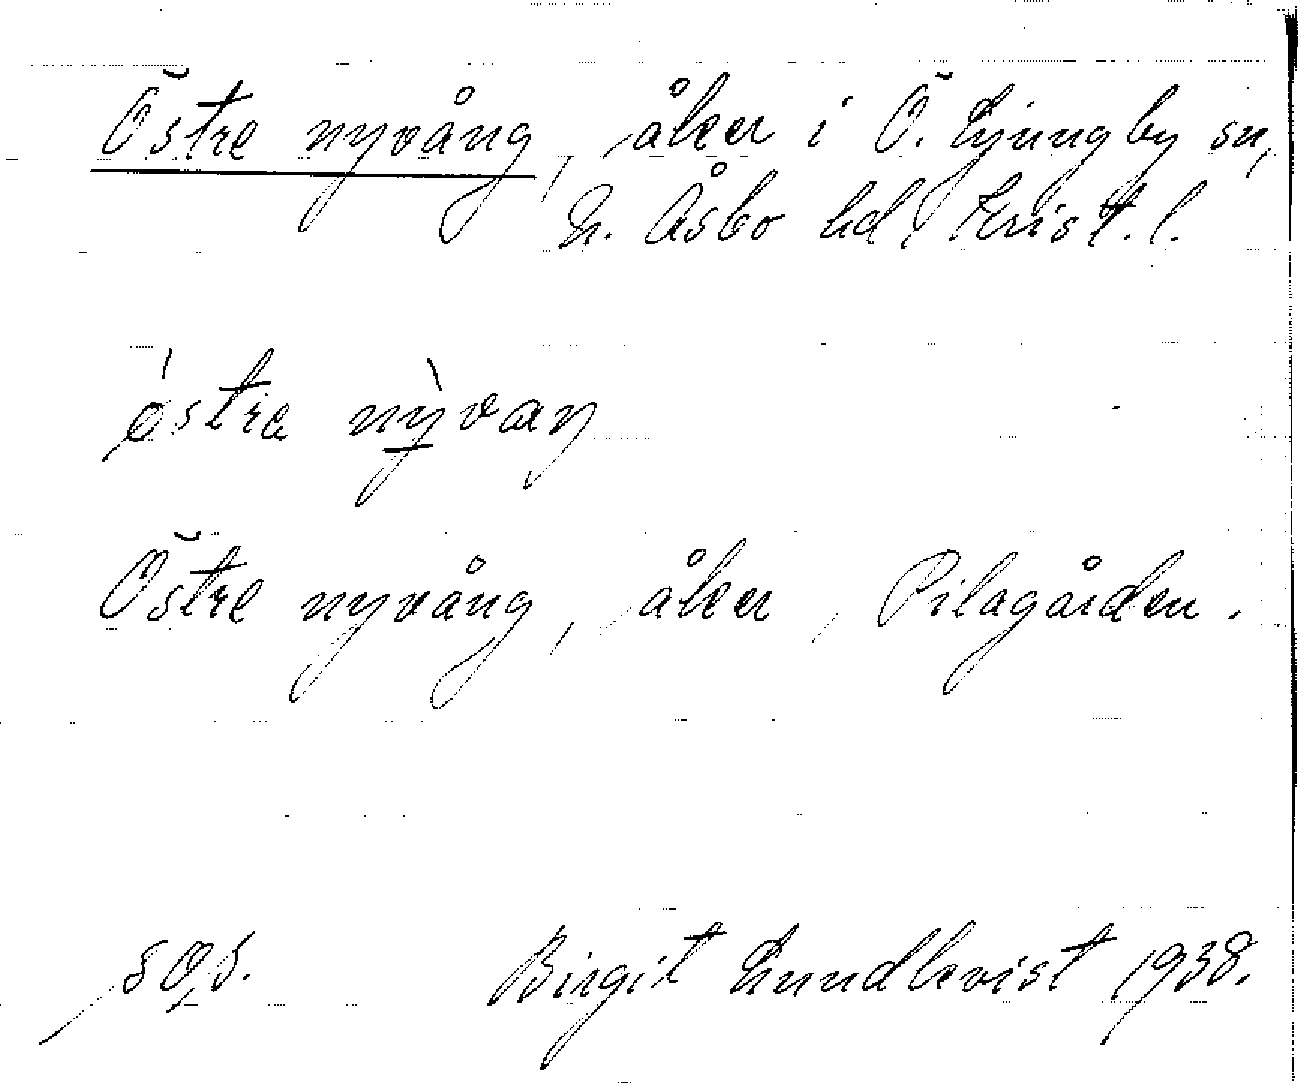 Östre nyvång, åker i Ö. Ljungby sn,
N. Åsbo hd, Krist. l.
östre nỳvaŋ
Östre nyvång, åker, Pilagården.
Birgit Lundkvist 1938.